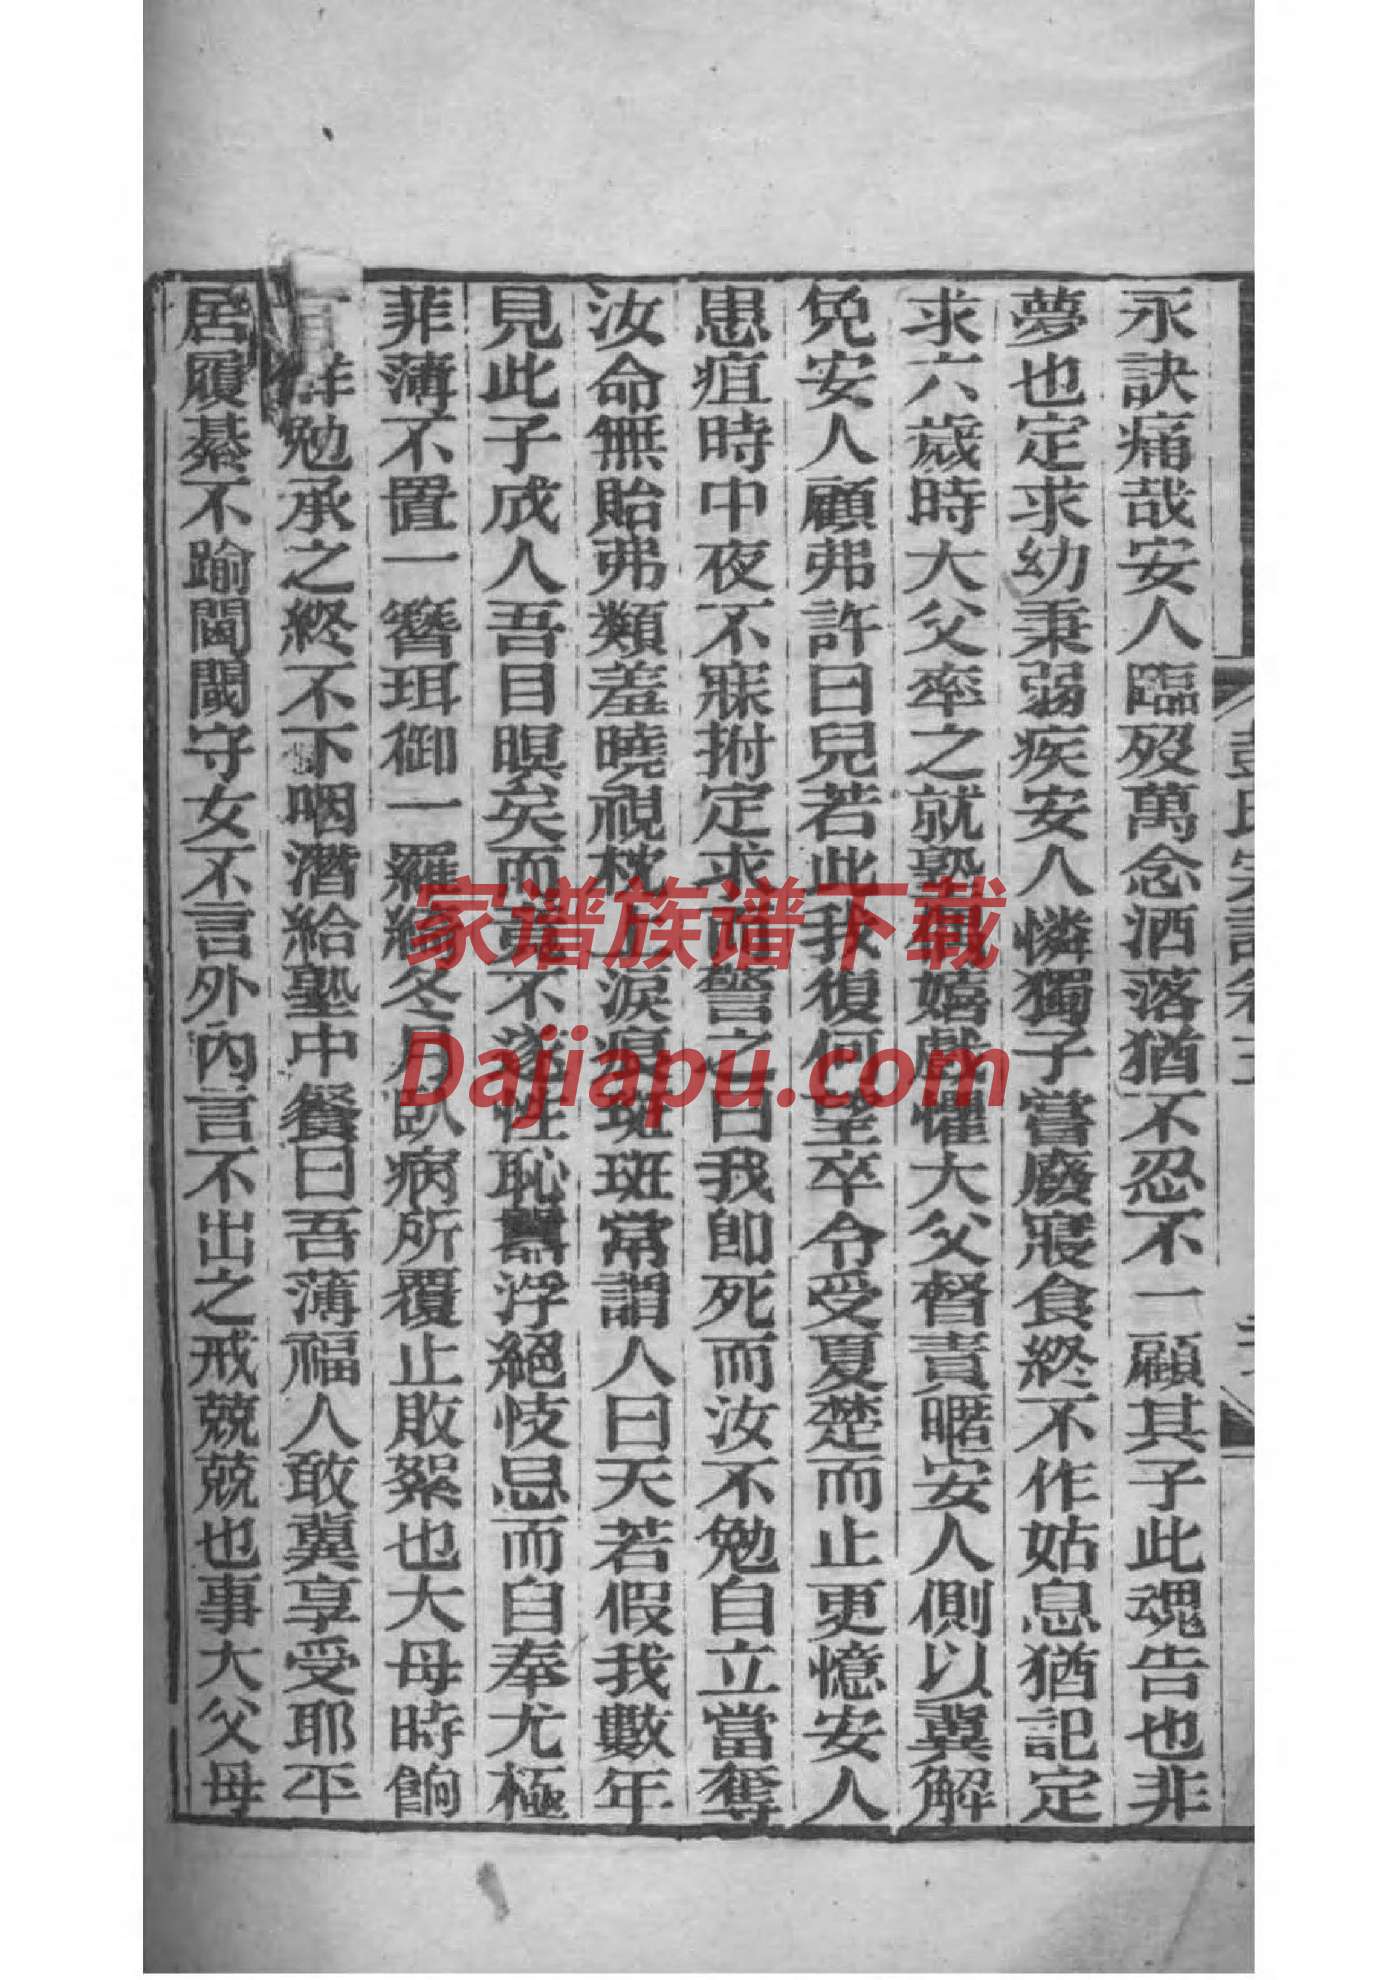 永訣痛哉安人臨歿萬念洒落猶不忍不一顧其子此魂告也非
夢也定求幼秉弱疾安人憐獨子當廢寢食終不作姑息猶記定
求六歲時大父率之就塾嬉戲懼大父督責暱安人側以冀解
免安人顧弗許曰兒若此我復何望卒令受夏楚而止更憶安人
患疽時中夜不寐拊定求而詧之曰我即死而汝不勉自立當奪
汝命無貽弗類羞曉視枕上淚痕斑斑常謂人曰天若假我數年
見此子成人吾目瞑矣而竟不遂性恥囂浮絕忮忌而自奉尤極
菲薄不置一簪珥御一羅綺冬月臥病所覆止敗絮也大母時餉
鮮勉承之終不下咽潛給塾中餐曰吾薄福人敢冀享受耶平
居履綦不踰閫閾守女不言外內言不出之戒兢兢也事大父母
彭氏宗譜卷三
家谱族谱下载
Dajiapu.com